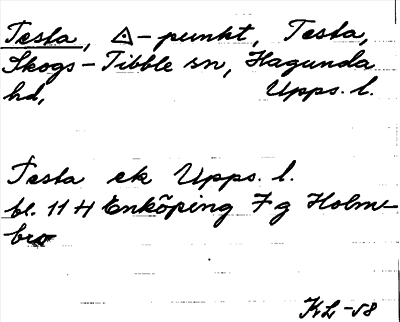 Testa, △-punkt, Testa,
Skogs-Tibble sn, Hagunda
hd, Upps. l.
Testa ek Upps. l.
bl. 11 H Enköping 7 g Holm-
bro
KL-58